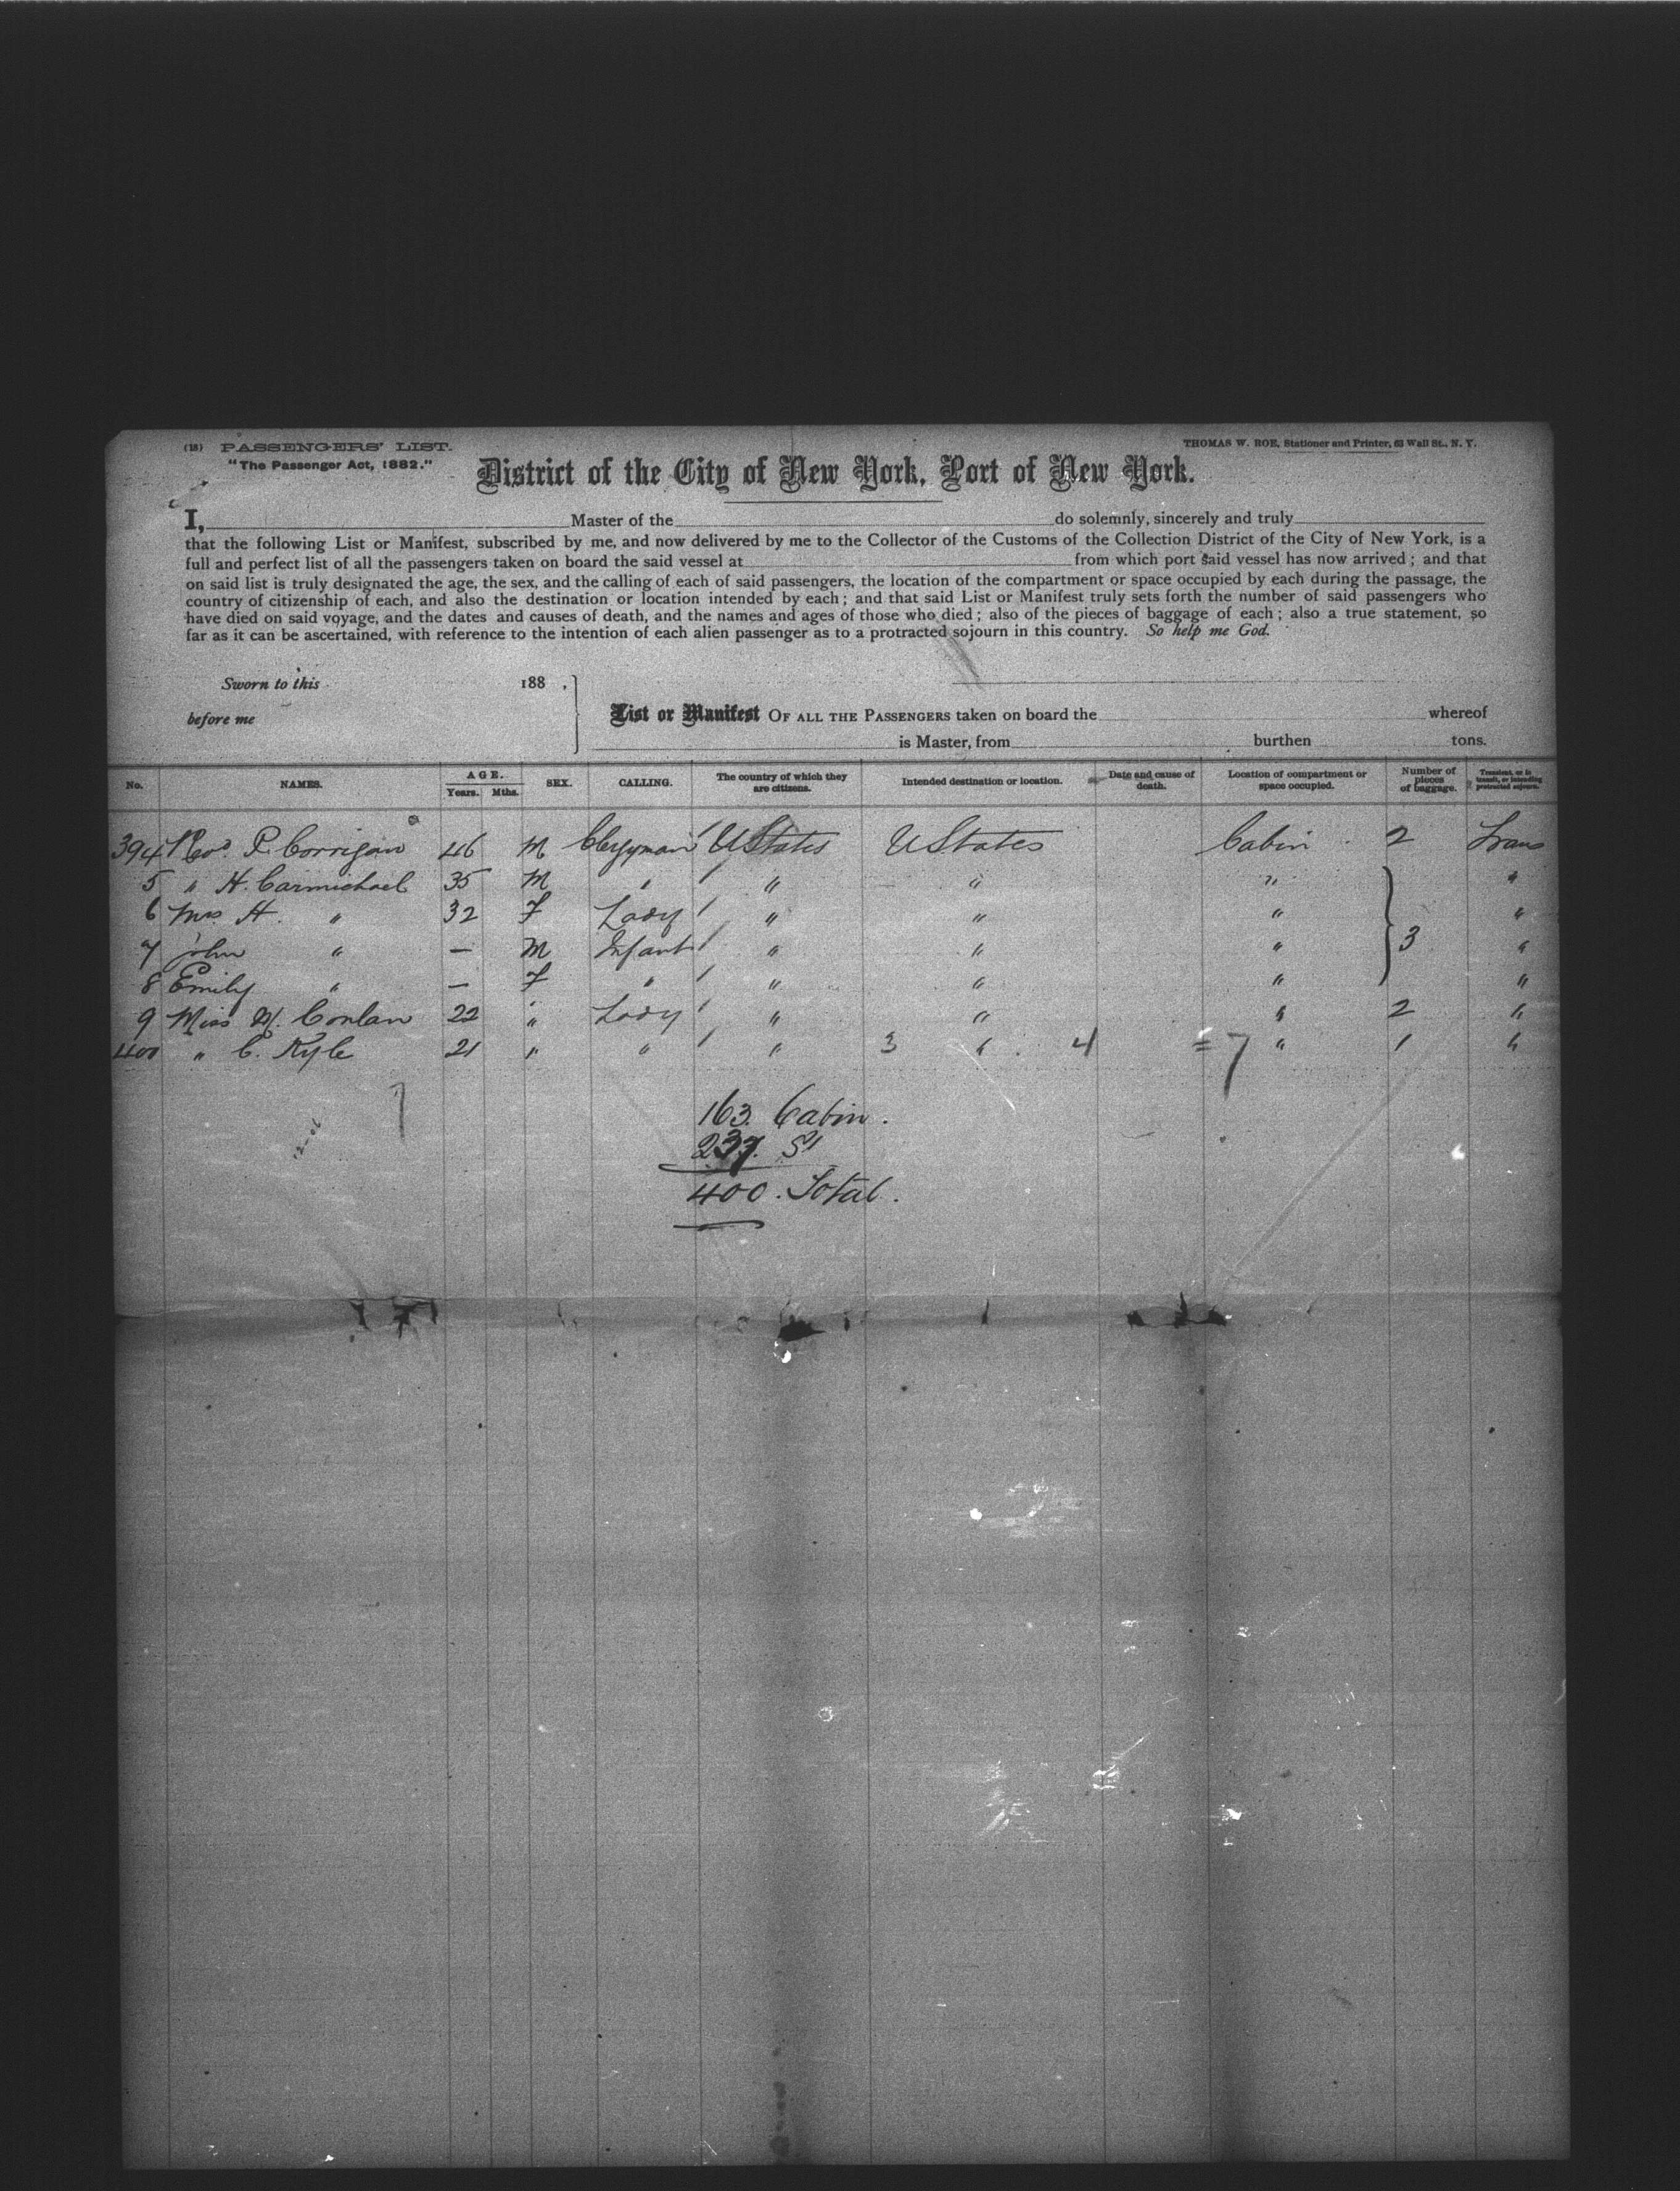 (18) PASSENGERS' LIST.
THOMAS W. ROE, Stationer and Printer, 63 Wall St., N. Y.
"The Passenger Act, 1882."
District of the City of New York, Port of New York.
I, Master of the do solemnly, sincerely and truly
that the following List or Manifest, subscribed by me, and now delivered by me to the Collector of the Customs of the Collection District of the City of New York, is a
full and perfect list of all the passengers taken on board the said vessel at from which port said vessel has now arrived; and that
on said list is truly designated the age, the sex, and the calling of each of said passengers, the location of the compartment or space occupied by each during the passage, the
country of citizenship of each, and also the destination or location intended by each; and that said List or Manifest truly sets forth the number of said passengers who
have died on said voyage, and the dates and causes of death, and the names and ages of those who died; also of the pieces of baggage of each; also a true statement, so
far as it can be ascertained, with reference to the intention of each alien passenger as to a protracted sojourn in this country. So help me God.
Sworn to this 188 ,
before me
List or Manifest OF ALL THE PASSENGERS taken on board the whereof
is Master, from burthen tons.
No. NAMES. AGE. Years. Mths. SEX. CALLING. The country of which they are citizens. Intended destination or location. Date and cause of death. Location of compartment or space occupied. Number of pieces of baggage. Transient, or in transit, or intending protracted sojourn.
394 Revd. P. Corrigan 46 M Clergyman UStates UStates Cabin 2 Trans
5 " H. Carmichael 35 M " " " " "
6 Mrs H. " 32 F Lady " " " "
7 John " — M Infant " " " 3 "
8 Emily " — F " " " " "
9 Miss M. Conlan 22 " Lady " " " 2 "
400 " C. Kyle 21 " " " 3 " 4 = 7 " 1 "
163. Cabin.
237. St
400. Total.